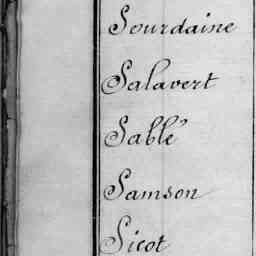 Sourdaine
Salavert
Sablé
Samson
Sicot